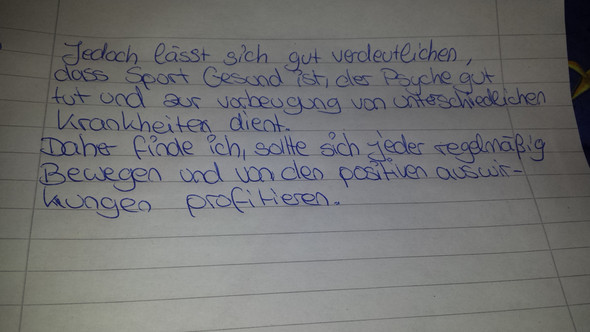 Jedoch lässt sich gut verdeutlichen,
dass Sport Gesund ist, der Psyche gut
tut und zur vorbeugung von unterschiedlichen
Krankheiten dient.
Daher finde ich, sollte sich jeder regelmäßig
Bewegen und von den positiven auswir-
kungen profitieren.